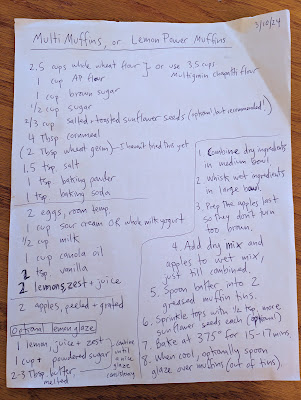 3/10/24
Multi Muffins, or Lemon Power Muffins
2.5 cups whole wheat flour } or use 3.5 cups
1 cup AP flour Multigrain chapatti flour
1 cup brown sugar
1/2 cup sugar
2/3 cup Salted + toasted sunflower seeds (optional but recommended!)
4 Tbsp cornmeal
(2 Tbsp wheat germ) - I haven't tried this yet
1.5 tsp salt
1 tsp baking powder
1 tsp baking soda
2 eggs, room temp
1 cup sour cream OR whole milk yogurt
1/2 cup milk
1 cup canola oil
2 tsp vanilla
2 lemons, zest + juice
2 apples, peeled + grated
Optional lemon glaze
1 lemon, juice + zest
1 cup + powdered sugar
2-3 Tbsp butter, melted
} combine until a nice glaze consistency
1. Combine dry ingredients
in medium bowl.
2. Whisk wet ingredients
in large bowl.
3. Prep the apples last
so they don't turn
too brown.
4. Add dry mix and
apples to wet mix,
just till combined.
5. Spoon batter into 2
greased muffin tins.
6. Sprinkle tops with 1/2 tsp more
sunflower seeds each (optional)
7. Bake at 375° for 15-17 mins.
8. When cool, optionally spoon
glaze over muffins (out of tins).